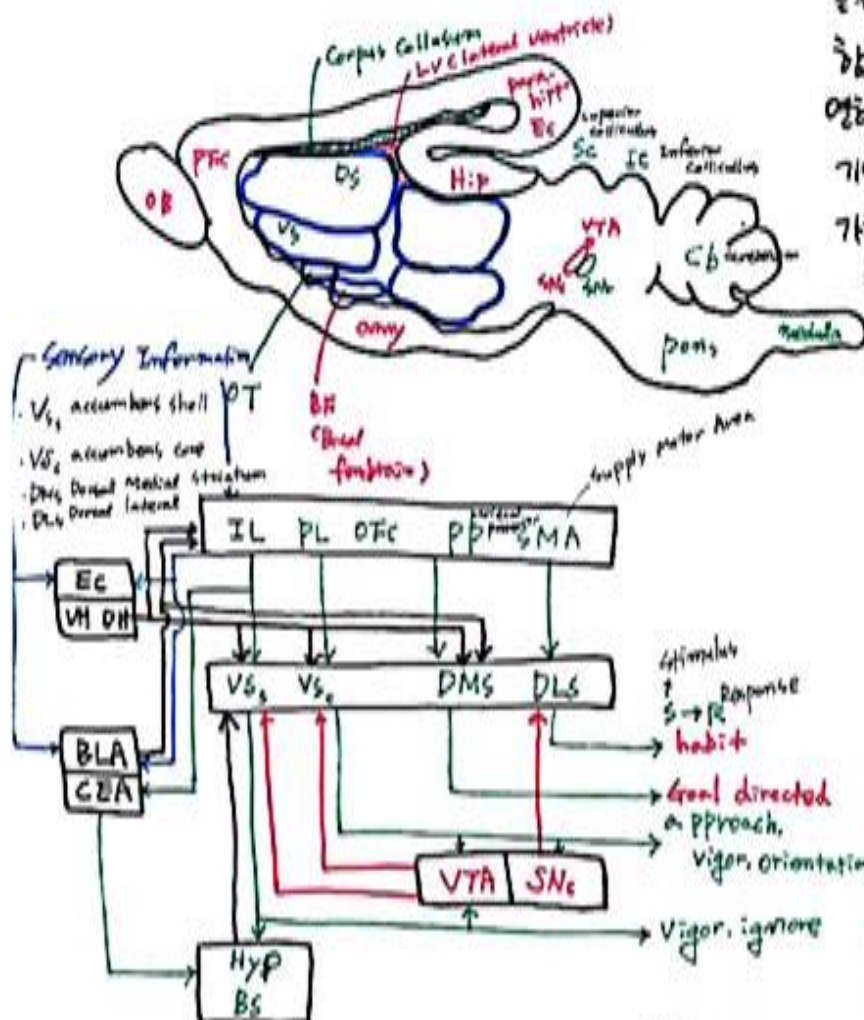 Corpus Collosum
LV (lateral ventricle)
para-
hipp
Ec
superior
colliculus
SC
IC
Inferior
colliculus
PFC
DS
Hip
OB
VS
VTA
SNc
Cb
Amy
pons
medulla
Sensory Information
OT
BF
VSs accumbens shell
VSc accumbens core
DMS Dorsal Medial striatum
DLS Dorsal lateral
Supply Motor Area
IL PL OFC PP SMA
EC
VH DH
VSs VSc DMS DLS
stimulus
S → R Response
habit
BLA
CEA
Goal directed
approach,
vigor, orientation
VTA SNc
Vigor, ignore
Hyp
BS